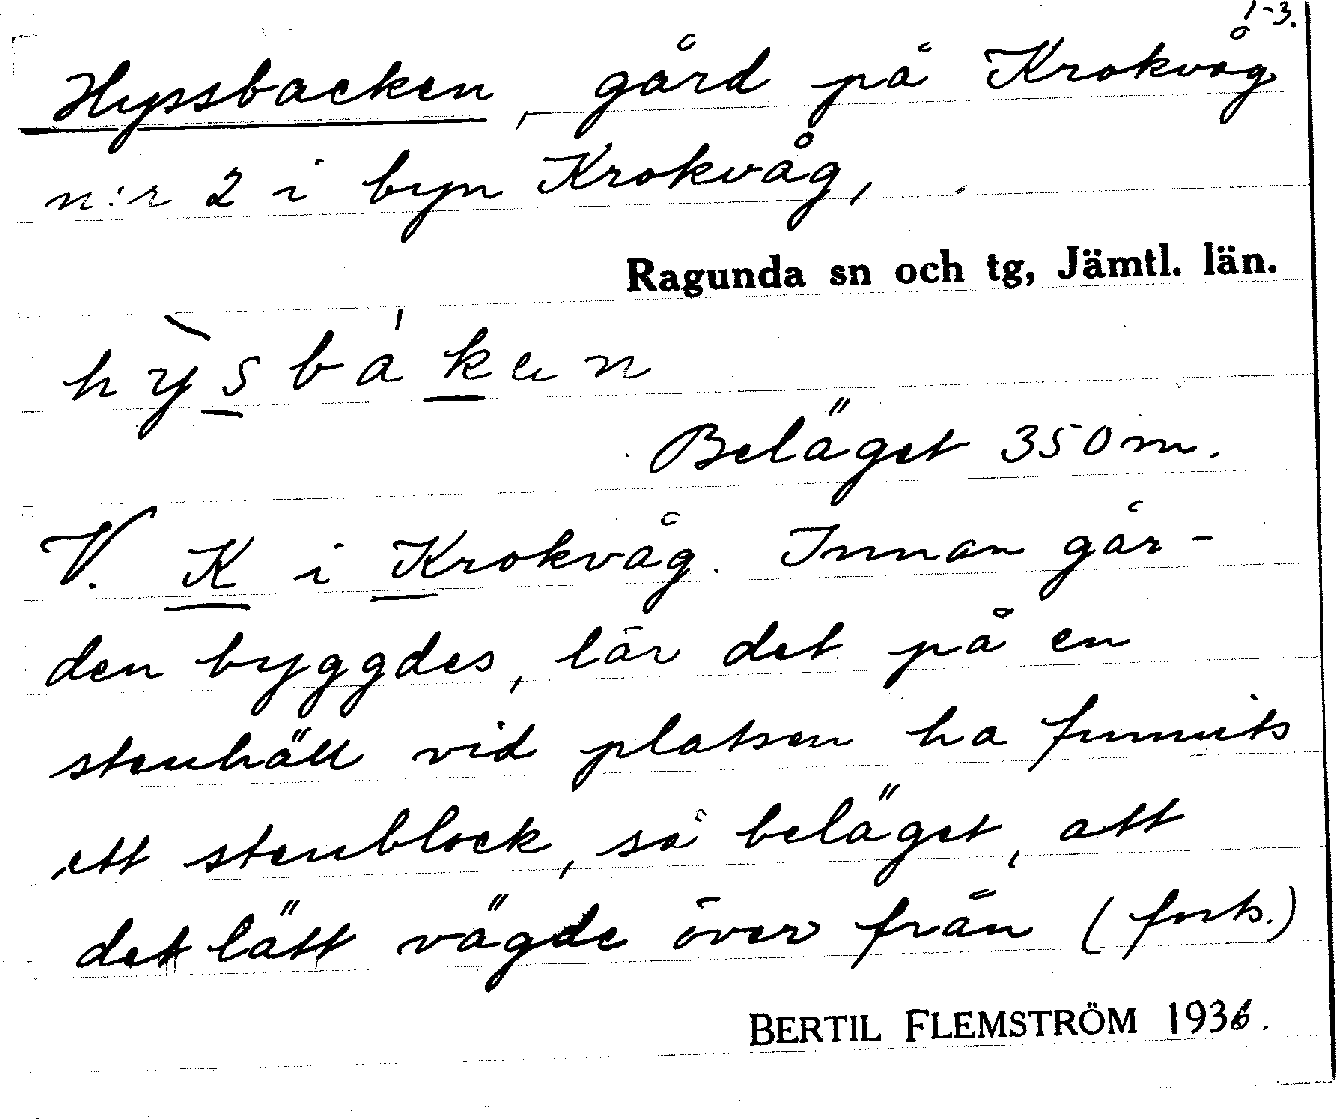 1-3.
Hyssbacken, gård på Krokvåg
n:r 2 i byn Krokvåg,
Ragunda sn och tg, Jämtl. län.
hỳsbákan
Beläget 350 m.
V. K i Krokvåg. Innan går-
den byggdes, lär det på en
stenhäll vid platsen ha funnits
ett stenblock, så beläget, att
det lätt vägde över från (forts.)
BERTIL FLEMSTRÖM 1936.